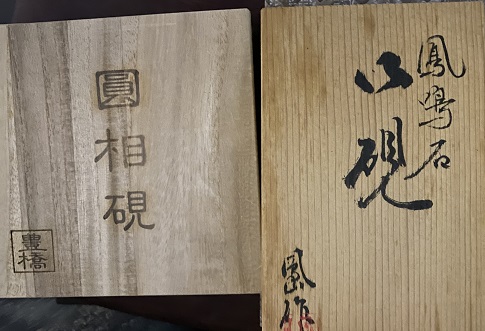 圓相硯
豊橋
鳳鳴石
硯
作